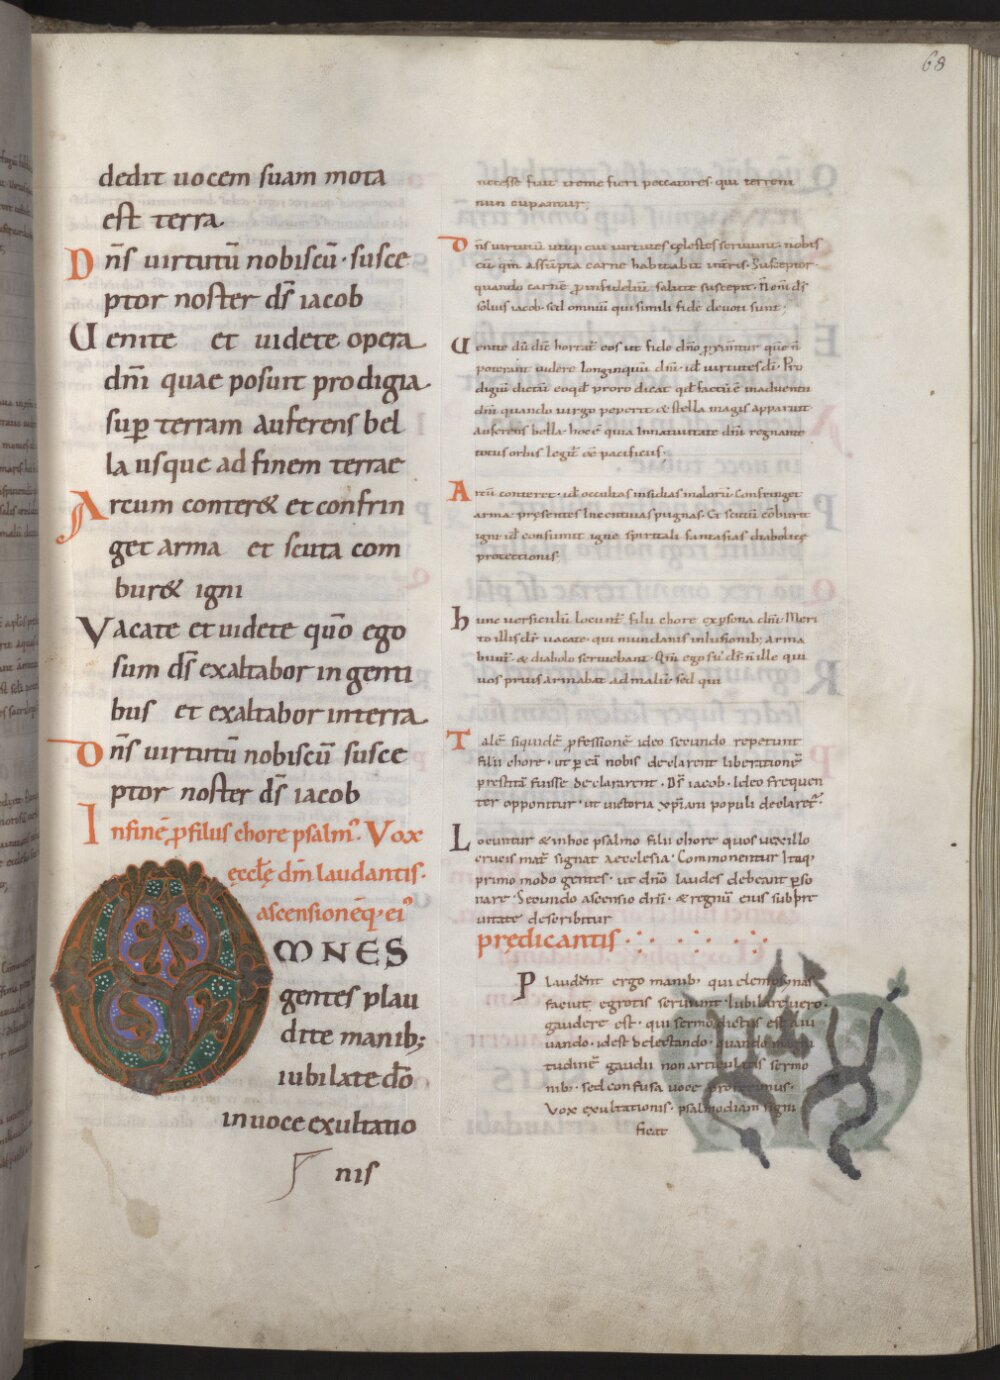 68
dedit uocem suam mota
est terra
Dn̄s uirtutū nobiscū · susce
ptor noster ds̄ iacob
Uenite et uidete opera
dn̄i quae posuit prodigia
sup̄ terram auferens bel
la usque ad finem terrae
Arcum conter& et confrin
get arma et scuta com
bur& igni
Vacate et uidete quō ego
sum ds̄ exaltabor in genti
bus et exaltabor interra
Dn̄s uirtutū nobiscū susce
ptor noster ds̄ iacob
In finē p̄ filius chore psalm̄. Vox
ęcclę dn̄i laudantis.
ascensionēq; ei'
OMNES
gentes plau
dite manib;
iubilate dō
inuoce exultatio
nis
necesse fuit treme fieri peccatores qui terreni
nuncupantur;
Dn̄s uirtutū utiq; cui uirtutes cęlestes seruiunt nobis
cū qm̄ assūpta carne habitabit Susceptor
quando carnē p infideliū salute suscepit. Non ds̄
solius iacob sed omniū qui simili fide deuoti sunt;
Uenite dū dic̄ hortat̄ eos ut fide dn̄o
poterant uidere longinquū dn̄i id uirtutes dī. Pro
digiū dictū eoqd̄ porro dicat qd̄ factū ē inaduentu
dn̄i quando uirgo peperit & stella magis apparuit
auferens bella hoc ē quia Innatiuitate dn̄i regnante
totus orbis pacificus.
Arcū conteret id occultas insidias maloru Confringet
arma pręsentes pugnas. Et scutū cōburet
igni id consumit igne spiritali fantasias diabolice
protectionis.
hunc uersiculū locunt̄ filii chore ex psona dn̄i. Meri
to illis dr̄ uacate qui mundanis inlusionib; arma
bunt̄ & diabolo seruiebant. Qm̄ ego sū ds̄ n̄ ille qui
uos prius armabat ad malū sed qui
Talē siquidē p̄fessionē ideo secundo repetunt
filii chore ut p eā nobis declarent liberationē
prestitā fuisse declararent. Ds̄ iacob ideo frequen
ter opponitur ut uictoria xp̄iani populi declaret̄.
Locuntur & inhoc psalmo filii chore quos uexillo
crucis mat̄ signat aecclesia. Commonentur Itaq;
primo modo gentes ut dn̄o laudes debeant pso
nare. Secundo ascensio dn̄i & regnū eius sub breuitate
describitur
prędicantis
Plaudent ergo manib; qui elemosynas
faciut egrotis seruiunt Iubilare uero
gaudere est qui sermo dictus est a iu
uando id est delectando quando magni
tudinē gaudii non articulatis sermo
nib; sed confusa uoce proferimus.
Vox exultationis psalmodiam signi
ficat